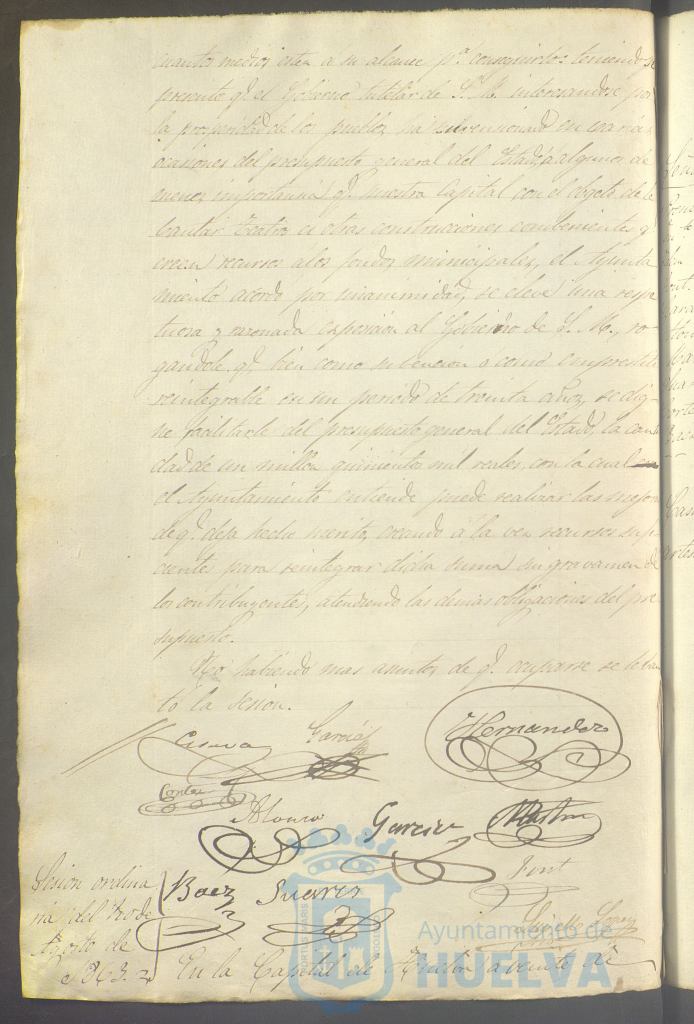 cuantos medios esten á su alcance pª conseguirlo: teniendose
presente qe el Gobierno tutelar de S. M. interesandose por
la prosperidad de los pueblos ha subvencionado en varias
ocasiones del presupuesto general del Estado, á algunos de
menos importancia qe nuestra Capital con el objeto de le
bantar teatros ú otras construcciones combenientes qe
creen recursos á los fondos municipales, el Ayunta
miento acordó por unanimidad, se eleve una respe
tuosa y razonada exposicion al Gobierno de S. M., ro-
gandole, qe bien como subencion o como empréstito
reintegrable en un periodo de treinta años, se dig-
ne facilitarle del presupuesto general del Estado, la can
dad de un millon quinientos mil reales, con la cual
el Ayuntamiento entiende puede realizar las mejoras
de qe deja hecho merito, creando á la vez recursos sufi
cientes para reintegrar dicha suma sin gravamen de
los contribuyentes, atendiendo las demas obligaciones del pre
supuesto.
No habiendo mas asuntos de qe ocuparse se leban
tó la sesion.
Garcia
Hernandez
Contu
Alonso
Garcia
Font
Baez
Suarez
Lopez
Sesion ordina
ria del 20 de
Agosto de
1863.
En la Capital de Huelva a veinte de
Ayuntamiento de
HUELVA